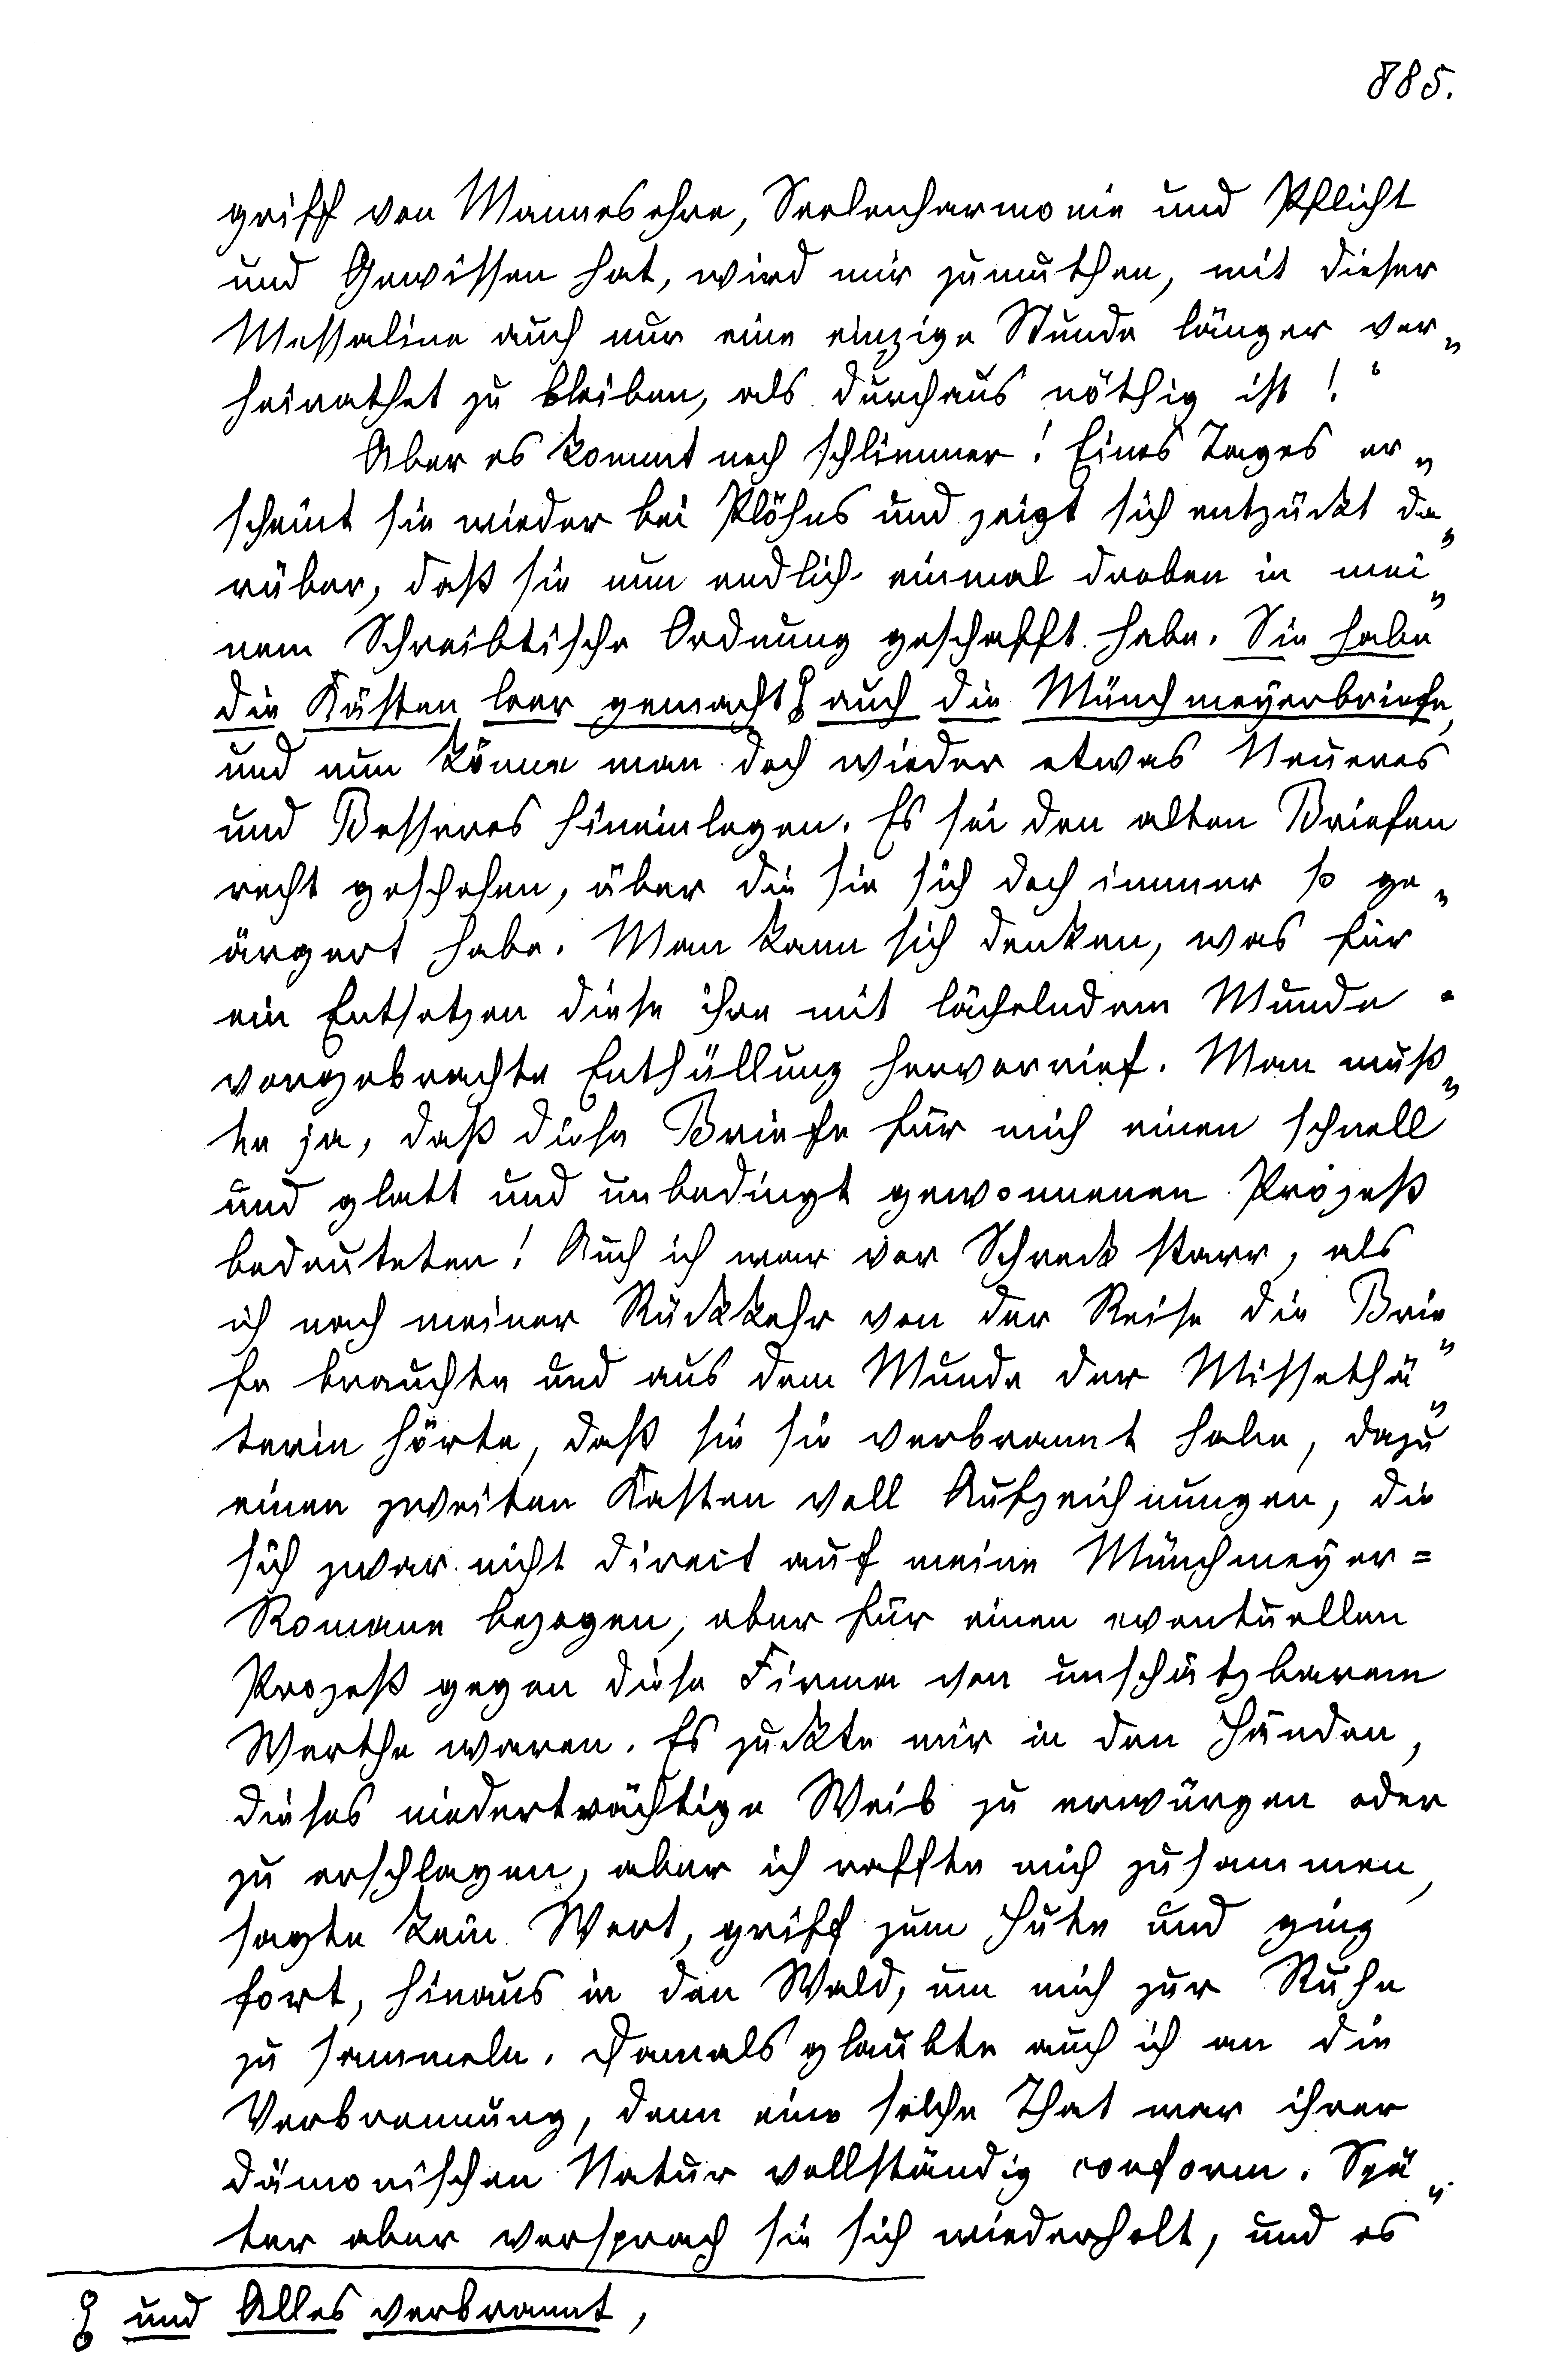 885.
griff von Mannesehre, Seelenharmonie und Pflicht
und Gewissen hat, wird mir zumuthen, mit dieser
Messaline auch nur eine einzige Stunde länger ver„
heirathet zu bleiben, als durchaus nöthig ist!“
Aber es kommt noch schlimmer! Eines Tages er„
scheint sie wieder bei Plöhns und zeigt sich entzückt da„
rüber, daß sie nun endlich einmal droben in mei„
nem Schreibtische Ordnung geschafft habe. Sie habe
die Kästen leer gemacht ƍ auch die Münchmeyerbriefe,
und nun könne man doch wieder etwas Neueres
und Besseres hineinlegen. Es sei den alten Briefen
recht geschehen, über die sie sich doch immer so ge„
ärgert habe. Man kann sich denken, was für
ein Entsetzen diese ihre mit lächelndem Munde
vorgebrachte Enthüllung hervorrief. Man wuß„
te ja, daß diese Briefe für mich einen schnell
und glatt und unbedingt gewonnenen Prozeß
bedeuteten! Auch ich war vor Schreck starr, als
ich nach meiner Rückkehr von der Reise die Brie„
fe brauchte und aus dem Munde der Missethä„
terin hörte, daß sie sie verbrannt habe, dazu
einen zweiten Kasten voll Aufzeichnungen, die
sich zwar nicht direct auf meine Münchmeyer=
Romane bezogen, aber für einen eventuellen
Prozeß gegen diese Firma von unschätzbarem
Werthe waren. Es zuckte mir in den Händen,
dieses niederträchtige Weib zu erwürgen oder
zu erschlagen, aber ich raffte mich zusammen,
sagte kein Wort, griff zum Hute und ging
fort, hinaus in den Wald, um mich zur Ruhe
zu sammeln. Damals glaubte auch ich an die
Verbrennung, denn eine solche That war ihrer
dämonischen Natur vollständig conform. Spä„
ter aber versprach sie sich wiederholt, und es
ƍ und Alles verbrannt,